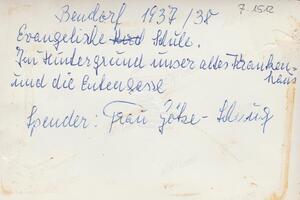 Bendorf 1937/38
7.1512
Evangelische Kind Schule.
Im Hintergrund unser altes Kranken-
haus
und die Eulengasse
Spender: Frau Götze-